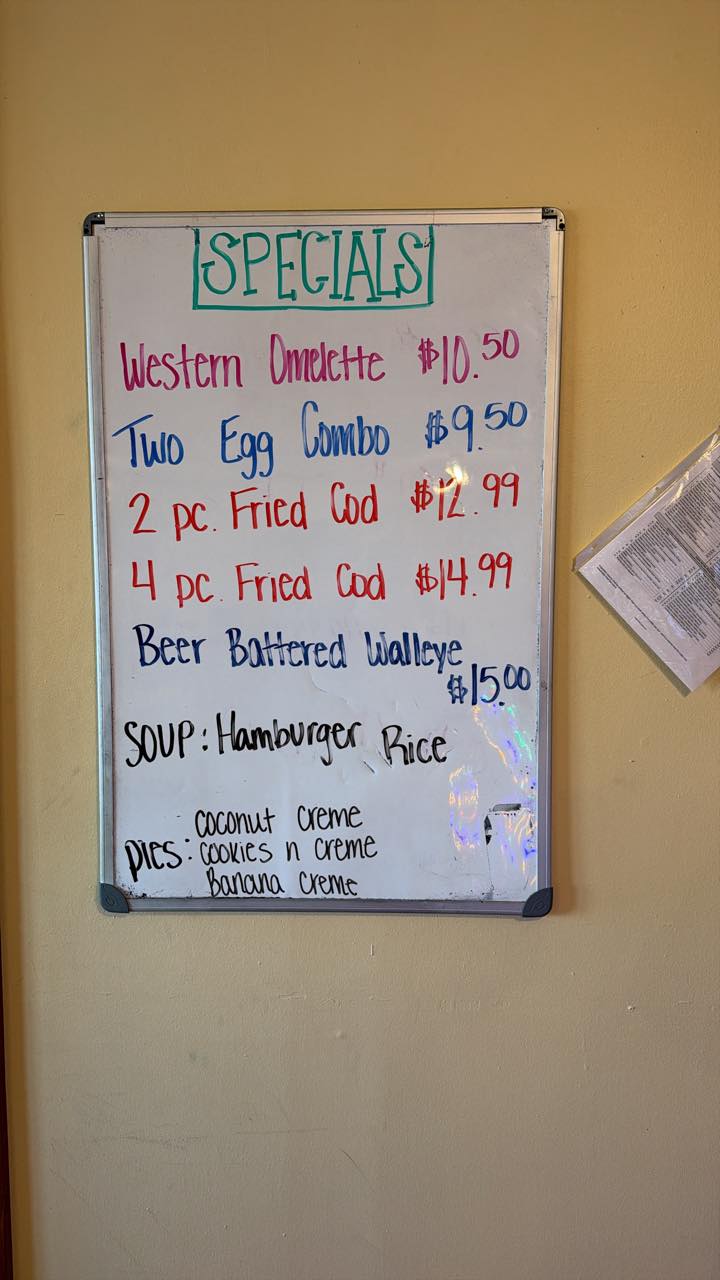 SPECIALS
Western Omelette $10.50
Two Egg Combo $9.50
2 pc. Fried Cod $12.99
4 pc. Fried Cod $14.99
Beer Battered Walleye
$15.00
SOUP: Hamburger Rice
coconut creme
pies: cookies n creme
Banana creme